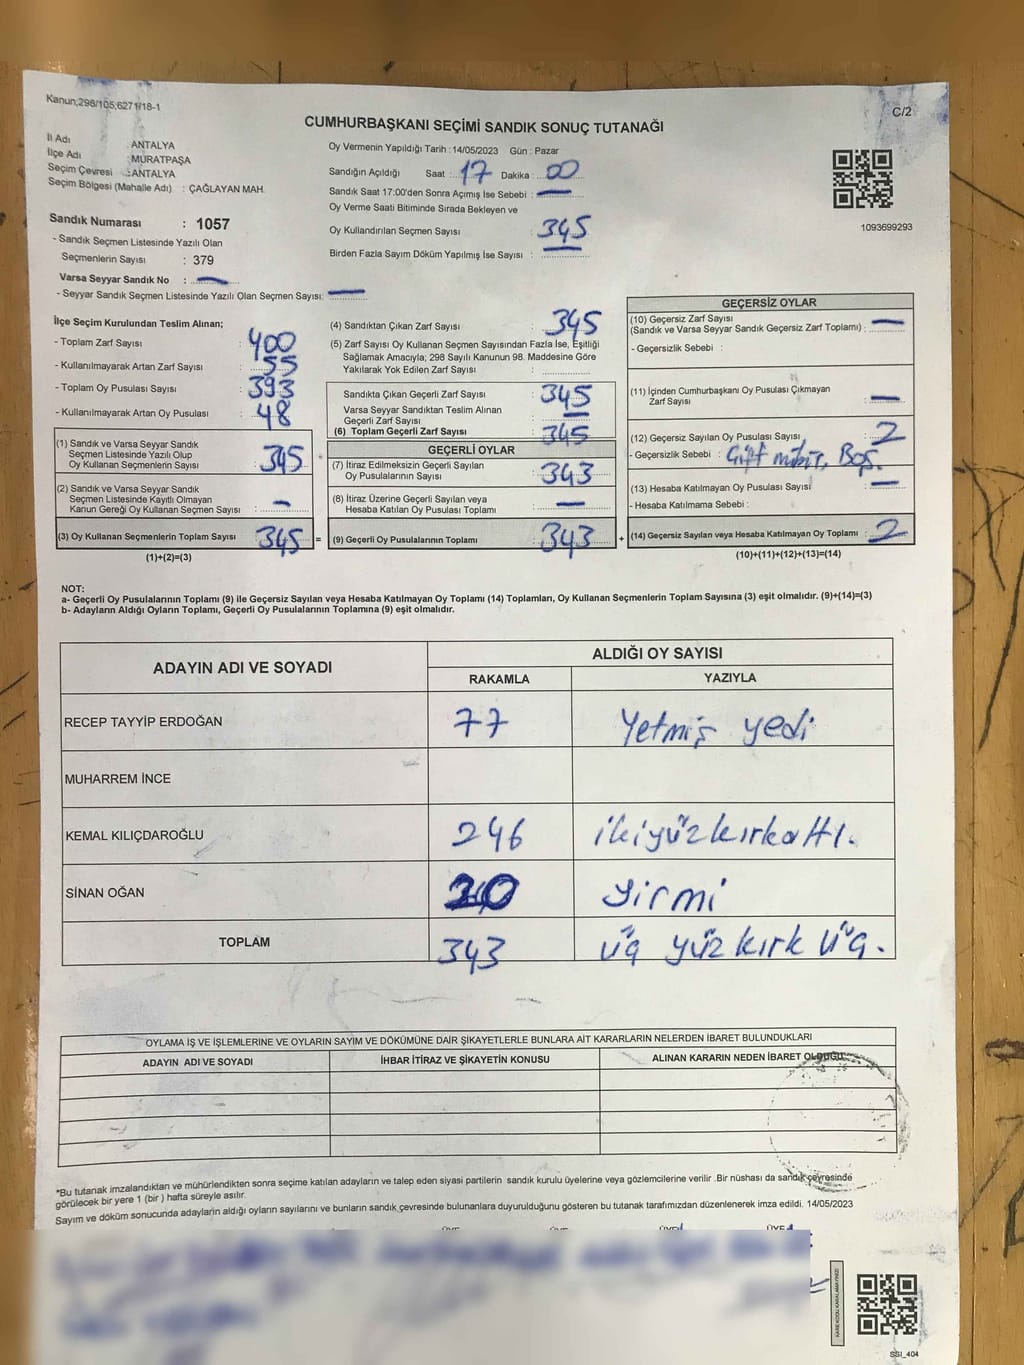 Kanun;298/105,6271/18-1
C/2
CUMHURBAŞKANI SEÇİMİ SANDIK SONUÇ TUTANAĞI
İl Adı : ANTALYA
İlçe Adı : MURATPAŞA
Seçim Çevresi : ANTALYA
Seçim Bölgesi (Mahalle Adı) : ÇAĞLAYAN MAH.
Sandık Numarası : 1057
- Sandık Seçmen Listesinde Yazılı Olan
Seçmenlerin Sayısı : 379
Varsa Seyyar Sandık No : —
- Seyyar Sandık Seçmen Listesinde Yazılı Olan Seçmen Sayısı: —
Oy Vermenin Yapıldığı Tarih : 14/05/2023 Gün : Pazar
Sandığın Açıldığı Saat : 17 Dakika : 00
Sandık Saat 17:00'den Sonra Açımış İse Sebebi : —
Oy Verme Saati Bitiminde Sırada Bekleyen ve
Oy Kullandırılan Seçmen Sayısı 345
Birden Fazla Sayım Döküm Yapılmış İse Sayısı : —
1093699293
İlçe Seçim Kurulundan Teslim Alınan;
- Toplam Zarf Sayısı : 400
- Kullanılmayarak Artan Zarf Sayısı : 55
- Toplam Oy Pusulası Sayısı : 393
- Kullanılmayarak Artan Oy Pusulası : 48
(1) Sandık ve Varsa Seyyar Sandık
Seçmen Listesinde Yazılı Olup
Oy Kullanan Seçmenlerin Sayısı : 345
(2) Sandık ve Varsa Seyyar Sandık
Seçmen Listesinde Kayıtlı Olmayan
Kanun Gereği Oy Kullanan Seçmen Sayısı : —
(3) Oy Kullanan Seçmenlerin Toplam Sayısı : 345 =
(1)+(2)=(3)
(4) Sandıktan Çıkan Zarf Sayısı : 345
(5) Zarf Sayısı Oy Kullanan Seçmen Sayısından Fazla İse, Eşitliği
Sağlamak Amacıyla; 298 Sayılı Kanunun 98. Maddesine Göre
Yakılarak Yok Edilen Zarf Sayısı :
Sandıkta Çıkan Geçerli Zarf Sayısı : 345
Varsa Seyyar Sandıktan Teslim Alınan
Geçerli Zarf Sayısı : —
(6) Toplam Geçerli Zarf Sayısı : 345
GEÇERLİ OYLAR
(7) İtiraz Edilmeksizin Geçerli Sayılan
Oy Pusulalarının Toplamı : 343
(8) İtiraz Üzerine Geçerli Sayılan veya
Hesaba Katılan Oy Pusulası Toplamı : —
(9) Geçerli Oy Pusulalarının Toplamı : 343 +
GEÇERSİZ OYLAR
(10) Geçersiz Zarf Sayısı : —
(Sandık ve Varsa Seyyar Sandık Geçersiz Zarf Toplamı) :
- Geçersizlik Sebebi :
(11) İçinden Cumhurbaşkanı Oy Pusulası Çıkmayan
Zarf Sayısı : —
(12) Geçersiz Sayılan Oy Pusulası Sayısı : 2
- Geçersizlik Sebebi : Çift mühür, Boş.
(13) Hesaba Katılmayan Oy Pusulası Sayısı : —
- Hesaba Katılmama Sebebi :
(14) Geçersiz Sayılan veya Hesaba Katılmayan Oy Toplamı : 2
(10)+(11)+(12)+(13)=(14)
NOT:
a- Geçerli Oy Pusulalarının Toplamı (9) ile Geçersiz Sayılan veya Hesaba Katılmayan Oy Toplamı (14) Toplamları, Oy Kullanan Seçmenlerin Toplam Sayısına (3) eşit olmalıdır. (9)+(14)=(3)
b- Adayların Aldığı Oyların Toplamı, Geçerli Oy Pusulalarının Toplamına (9) eşit olmalıdır.
ADAYIN ADI VE SOYADI ALDIĞI OY SAYISI
RAKAMLA YAZIYLA
RECEP TAYYİP ERDOĞAN 77 Yetmiş yedi
MUHARREM İNCE
KEMAL KILIÇDAROĞLU 246 ikiyüzkırkaltı.
SİNAN OĞAN 20 yirmi
TOPLAM 343 üç yüz kırk üç.
OYLAMA İŞ VE İŞLEMLERİNE VE OYLARIN SAYIM VE DÖKÜMÜNE DAİR ŞİKAYETLERLE BUNLARA AİT KARARLARIN NELERDEN İBARET BULUNDUKLARI
ADAYIN ADI VE SOYADI İHBAR İTİRAZ VE ŞİKAYETİN KONUSU ALINAN KARARIN NEDEN İBARET OLDUĞU
*Bu tutanak imzalandıktan ve mühürlendikten sonra seçime katılan adayların ve talep eden siyasi partilerin sandık kurulu üyelerine veya gözlemcilerine verilir .Bir nüshası da sandık çevresinde
görülecek bir yere 1 (bir ) hafta süreyle asılır.
Sayım ve döküm sonucunda adayların aldığı oyların sayılarını ve bunların sandık çevresinde bulunanlara duyurulduğunu gösteren bu tutanak tarafımızdan düzenlenerek imza edildi. 14/05/2023
SSI_404